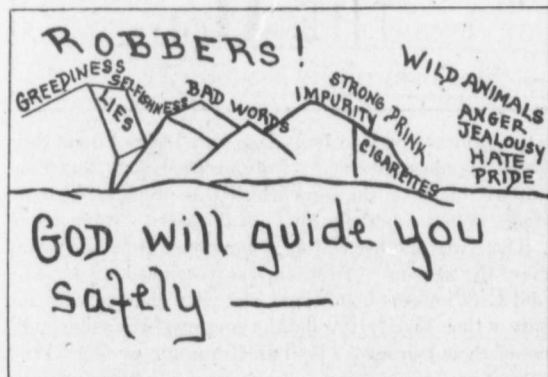 ROBBERS!
GREEDINESS
LIES
SELFISHNESS
BAD WORDS
IMPURITY
STRONG DRINK
CIGARETTES
WILD ANIMALS
ANGER
JEALOUSY
HATE
PRIDE
GOD will guide you
safely